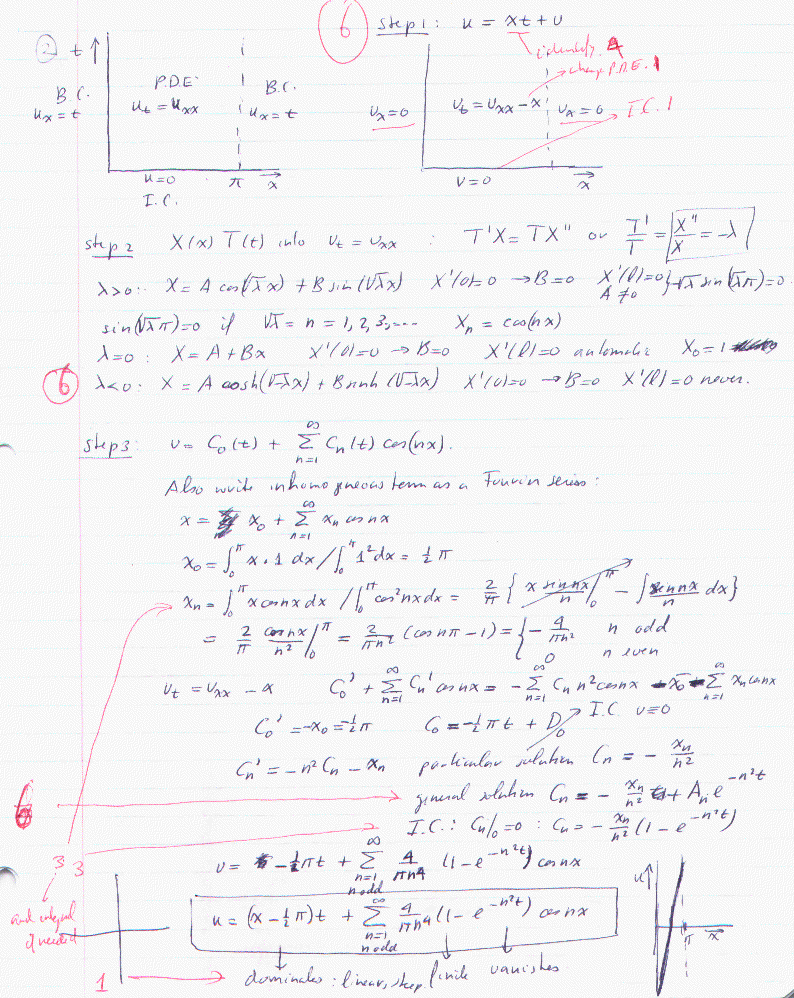 ② t↑
P.D.E:
u_t = u_xx
B.C.
u_x = t
B.C.
u_x = t
u=0 π x
I.C.
⑥ step 1: u = xt + v
identify 4
change P.D.E. 1
v_x=0 v_t = v_xx - x v_x = 0 I.C. 1
v=0 x
step 2 X(x) T(t) into v_t = v_xx : T'X = TX'' or T'/T = X''/X = -λ
λ>0: X = A cos(√λ x) + B sin(√λ x) X'(0)=0 → B=0 X'(l)=0 A≠0 } -√λ sin(√λ π)=0
sin(√λ π)=0 if √λ = n = 1, 2, 3, ... X_n = cos(nx)
λ=0: X = A + Bx X'(0)=0 → B=0 X'(l)=0 automatic X_0 = 1
⑥ λ<0: X = A cosh(√-λ x) + B sinh(√-λ x) X'(0)=0 → B=0 X'(l)=0 never.
step 3: v = C_0(t) + ∞ Σ n=1 C_n(t) cos(nx).
Also write inhomogeneous term as a Fourier series:
x = x_0 + ∞ Σ n=1 x_n cos nx
x_0 = ∫_0^π x·1 dx / ∫_0^π 1² dx = ½ π
x_n = ∫_0^π x cos nx dx / ∫_0^π cos² nx dx = 2/π { x sin nx / n |_0^π - ∫ sin nx / n dx }
= 2/π cos nx / n² |_0^π = 2/πn² (cos nπ - 1) = { -4/πn² n odd
0 n even
v_t = v_xx - x C_0' + ∞ Σ n=1 C_n' cos nx = - ∞ Σ n=1 C_n n² cos nx - x_0 - ∞ Σ n=1 x_n cos nx
C_0' = -x_0 = -½ π C_0 = -½ π t + D_0 I.C. v=0
C_n' = -n² C_n - x_n particular solution C_n = - x_n/n²
6 general solution C_n = - x_n/n² + A_n e^{-n²t}
I.C.: C_n|_0 = 0 : C_n = - x_n/n² (1 - e^{-n²t})
3 3
v = -½ π t + ∞ Σ n=1 n odd 4/πn⁴ (1 - e^{-n²t}) cos nx
and integral if needed
u = (x - ½ π) t + ∞ Σ n=1 n odd 4/πn⁴ (1 - e^{-n²t}) cos nx
u↑ π x
1 dominates: linear, steep finite vanishes